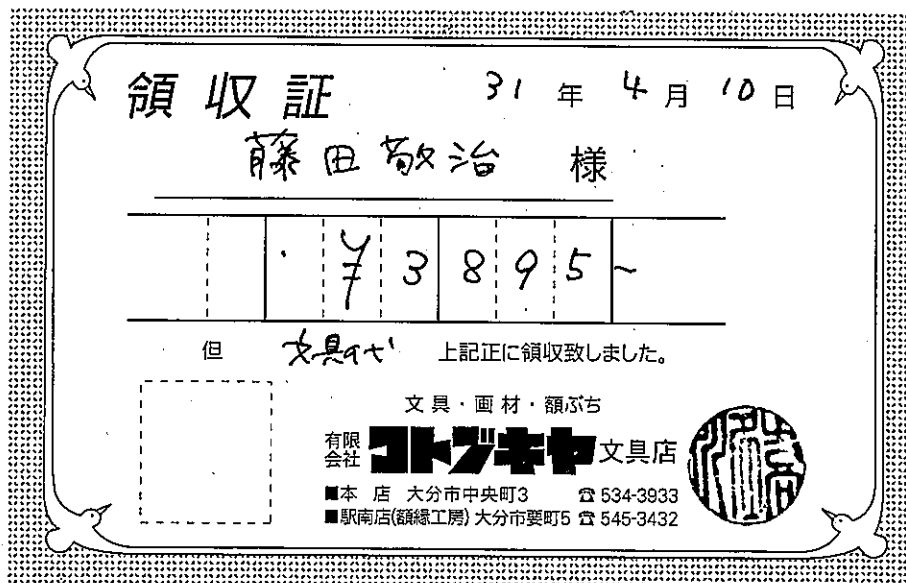 領収証 31年4月10日
藤田敬治 様
¥3895~
但 文具代 上記正に領収致しました。
文具・画材・額ぶち
有限会社 コトブキヤ 文具店
■本 店 大分市中央町3 ☎534-3933
■駅南店(額縁工房) 大分市要町5 ☎545-3432